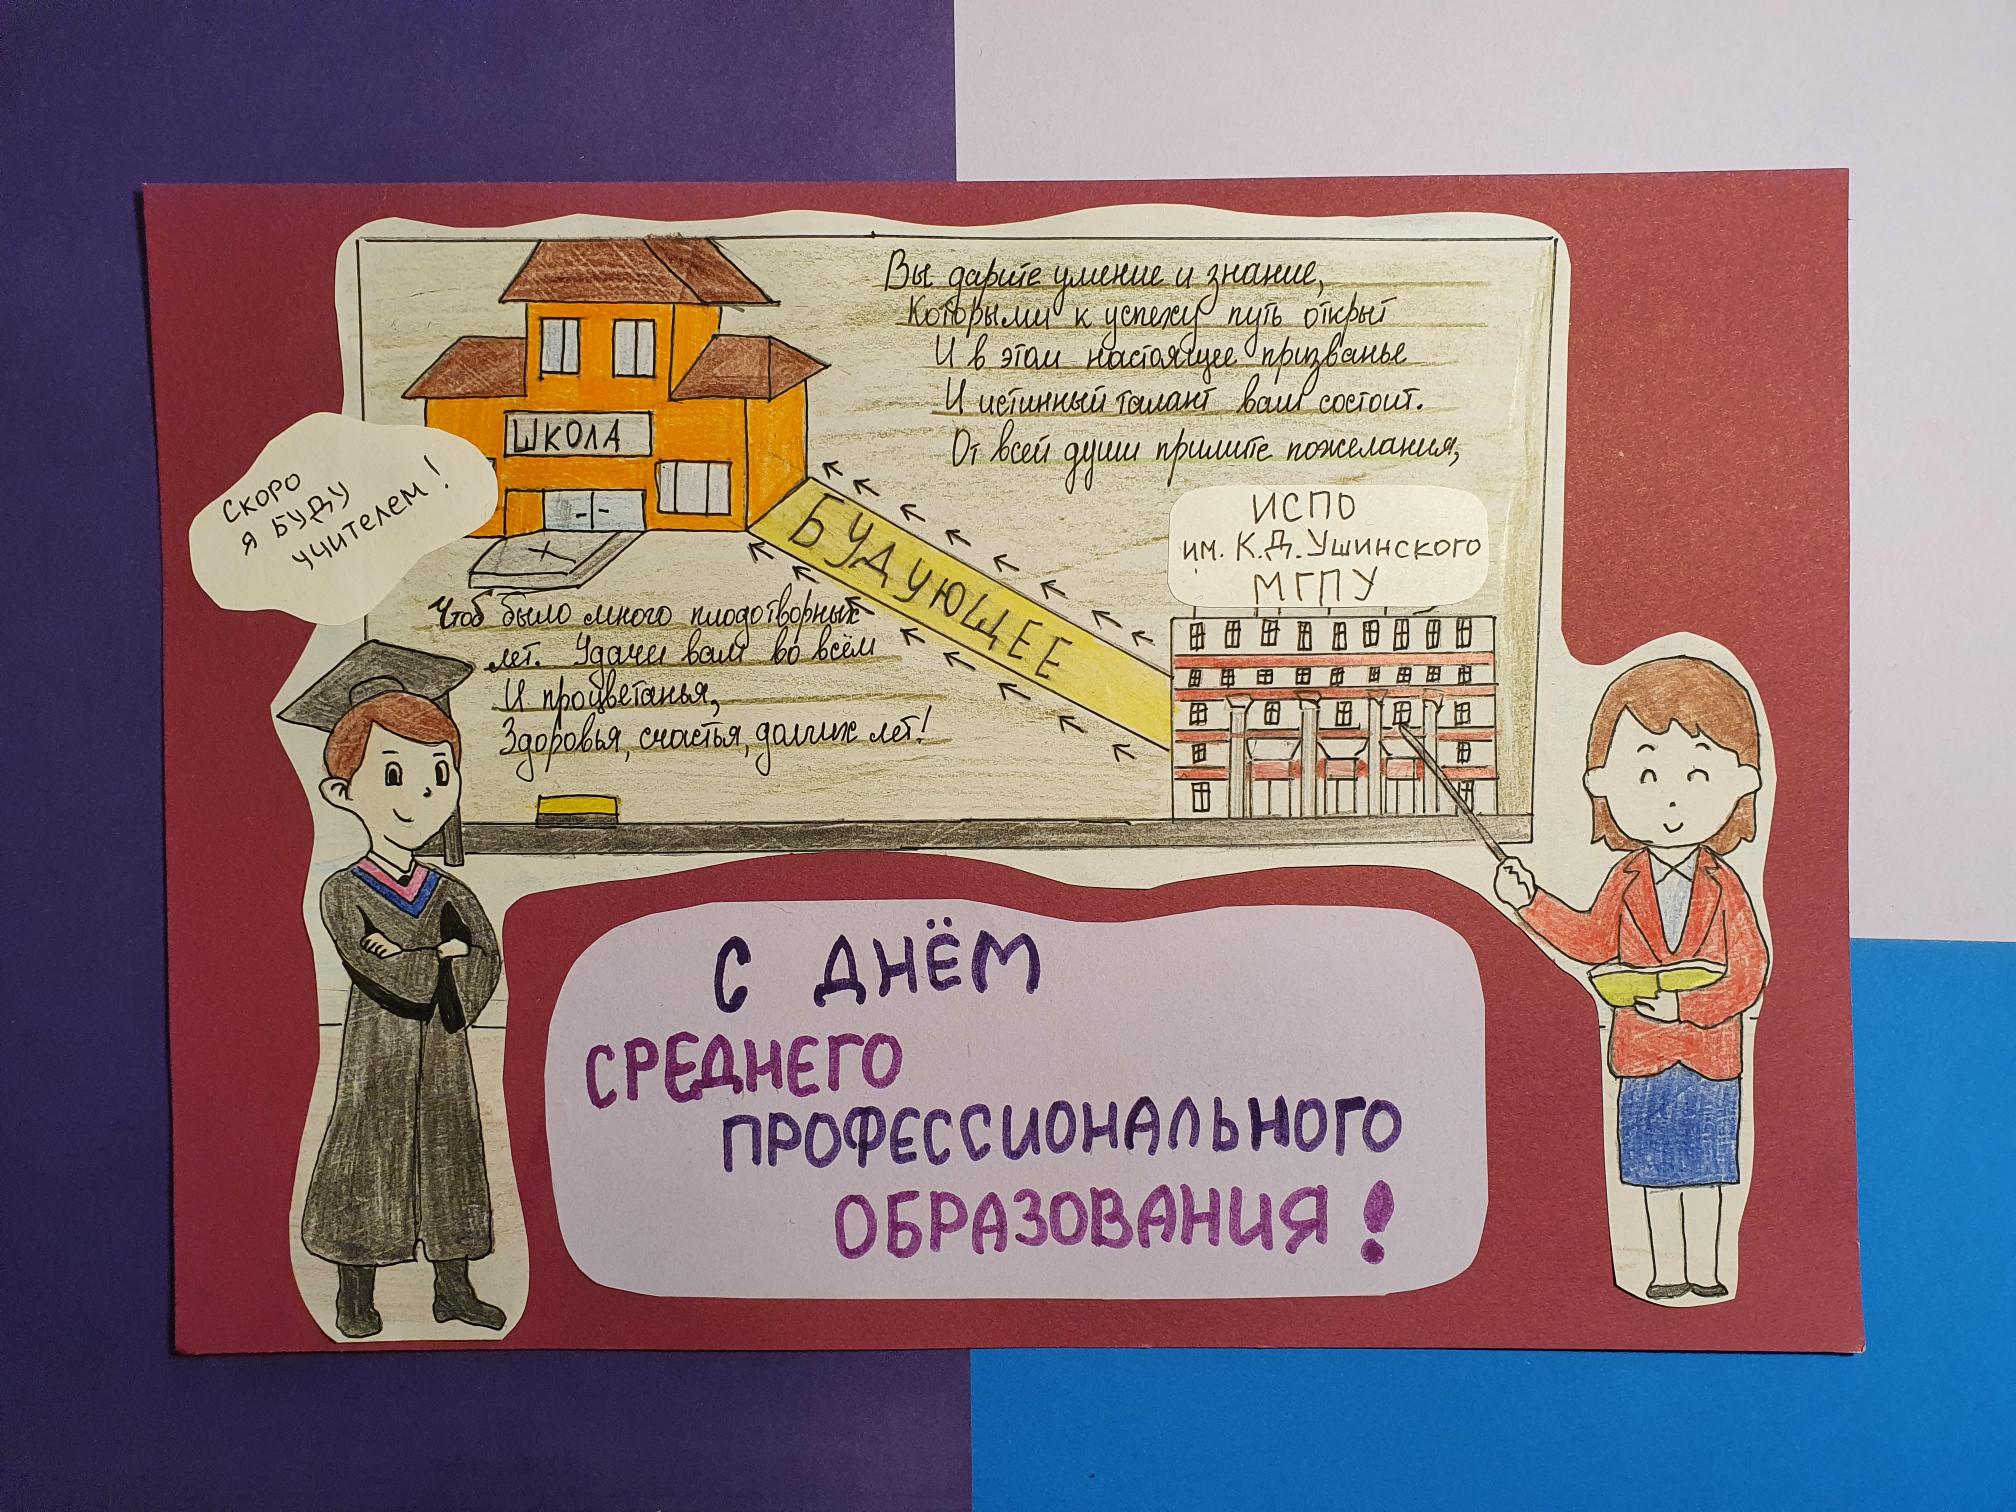 Вы дарите умение и знание,
Которыми к успеху путь открыт
И в этом настоящее призванье
И истинный талант ваш состоит.
От всей души примите пожелания,
ШКОЛА
Скоро
я буду
учителем!
БУДУЮЩЕЕ
ИСПО
им. К.Д. Ушинского
МГПУ
Чтоб было много плодотворных
лет. Удачи вам во всём
И процветанья,
Здоровья, счастья, долгих лет!
С ДНЁМ
СРЕДНЕГО
ПРОФЕССИОНАЛЬНОГО
ОБРАЗОВАНИЯ!